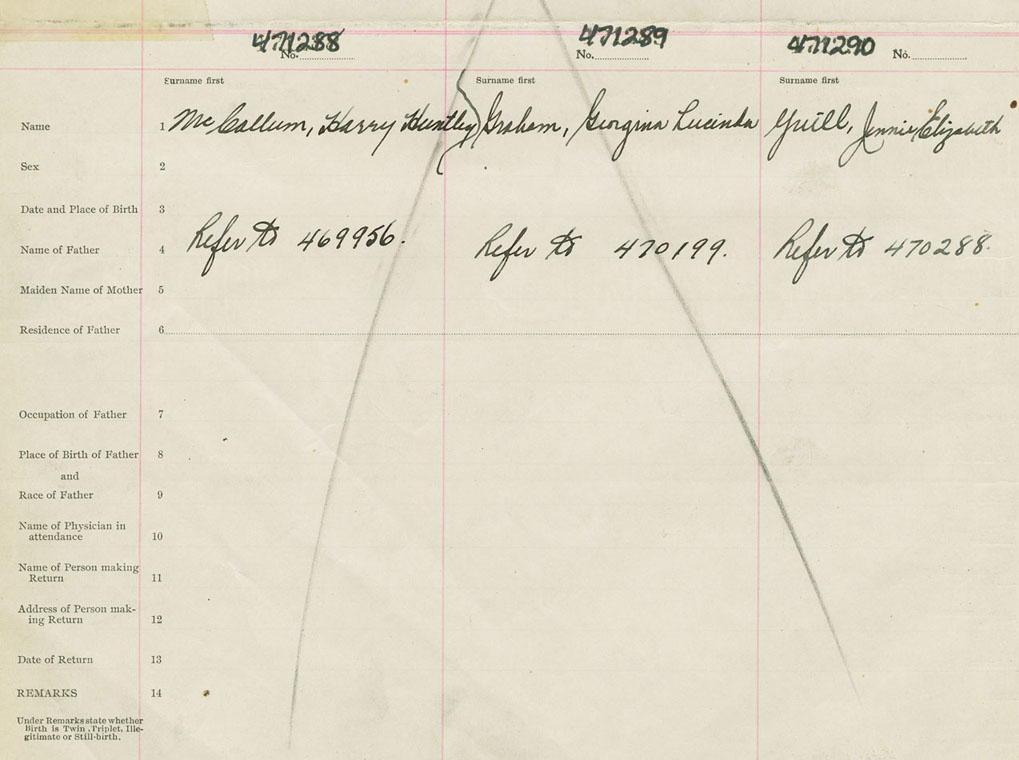 471288
No.
471289
No.
471290
No.
Surname first
Surname first
Surname first
Name 1 McCallum, Harry Huntley Graham, Georgina Lucinda Yuill, Jennie Elizabeth
Sex 2
Date and Place of Birth 3
Name of Father 4 Refer to 469956. Refer to 470199. Refer to 470288.
Maiden Name of Mother 5
Residence of Father 6
Occupation of Father 7
Place of Birth of Father 8
and
Race of Father 9
Name of Physician in
attendance 10
Name of Person making
Return 11
Address of Person mak-
ing Return 12
Date of Return 13
REMARKS 14
Under Remarks state whether
Birth is Twin, Triplet, Ille-
gitimate or Still-birth.